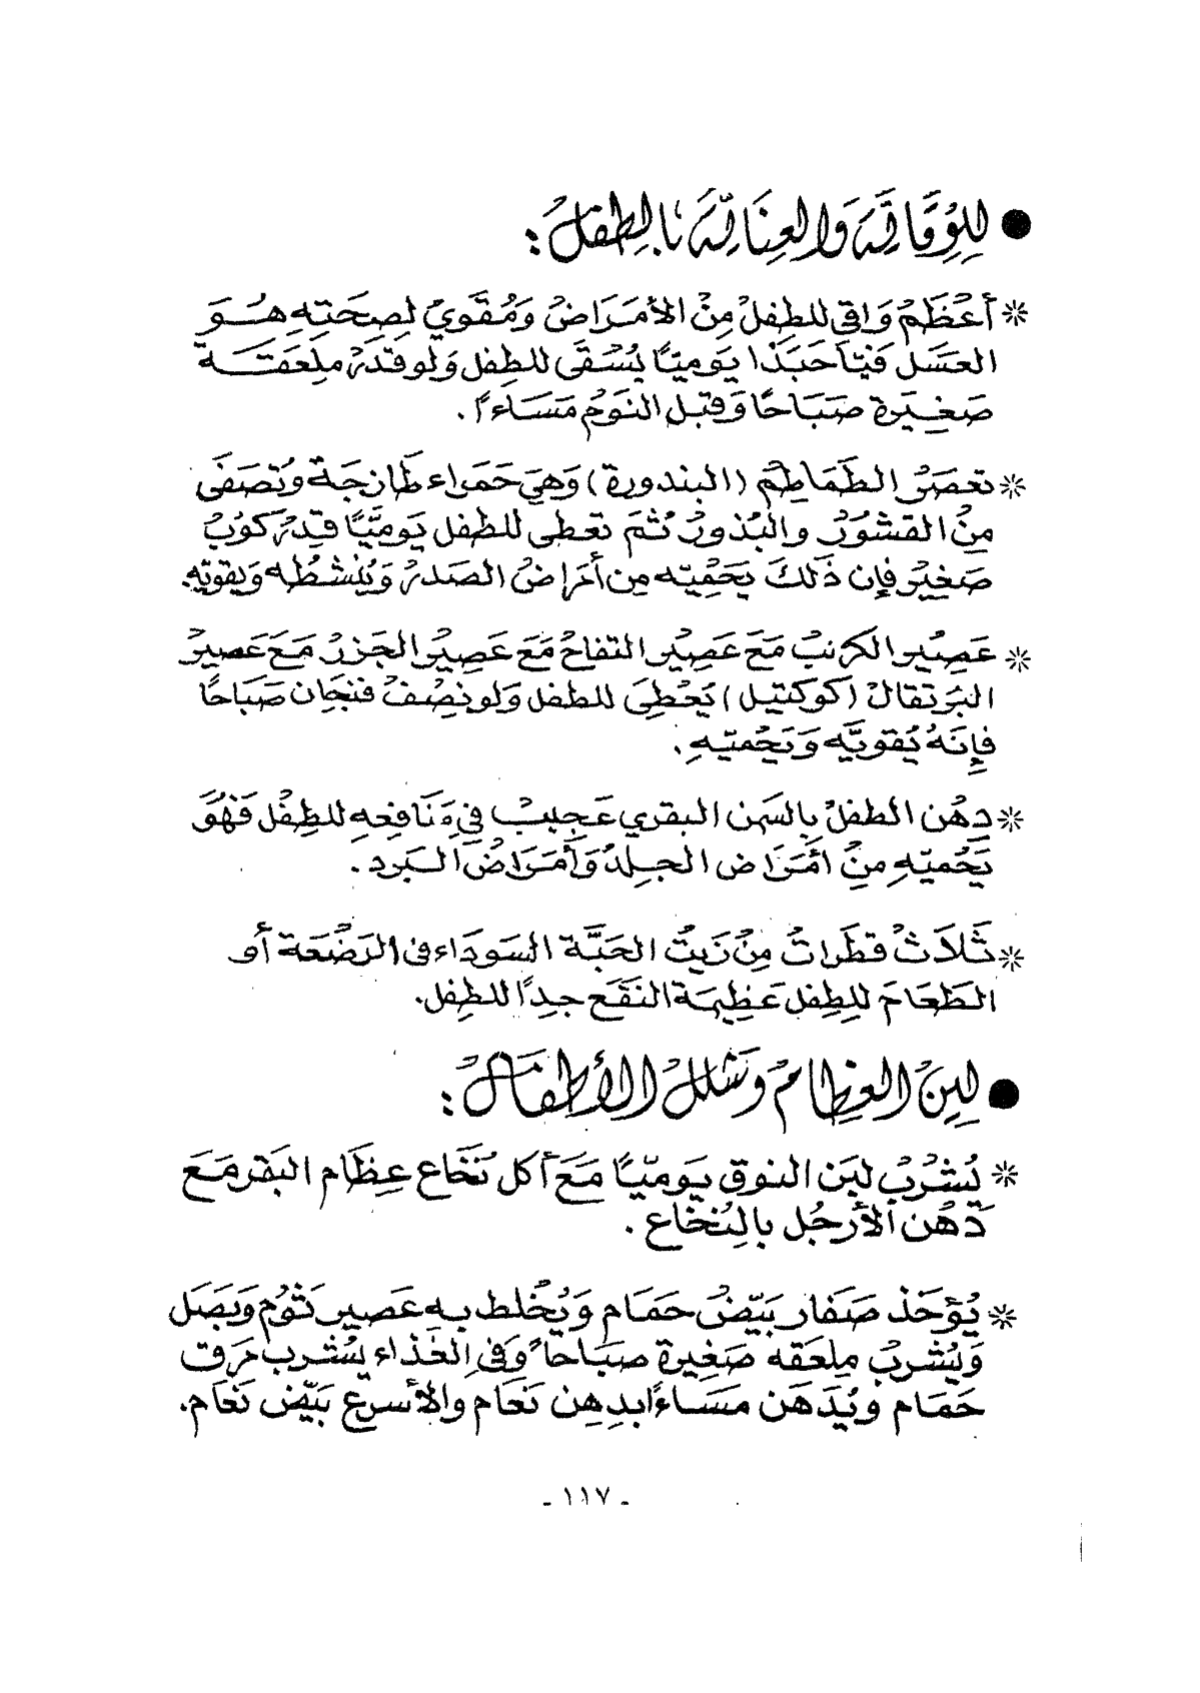 ● لِلوِقَايَةِ وَالعِنَايَةِ بِالطِفلِ:
* أعْظَمُ وَاقِي للطِفلْ مِنْ الأمَرَاضْ وَمُقَوِيٌ لِصِحَتِهِ هُـوَ
العَسَل فَيَا حَبَذَا يَومِيًا يُسْقَى للطِفل وَلو قَدَرْ مِلعَقَـة
صَغِيَرة صَبَاحًا وَقبَل النَومُ مَسَاءًا .
* تعصَرُ الطَمَاطِمْ (البندورة) وَهيَ حَمَراء طَازجَة وَتُصَفَى
مِنْ القشُورُ والبُذورُ ثُمَ تعطى للطفل يَوميًّا قِدْر كَوُبْ
صَغِيْر فإن ذَلكَ يَحَمْيِّه مِن أمَراضْ الصَدرْ وَيُنْشطُه وَيقويِّه.
* عَصِيْر الكرنبْ مَعَ عَصِيْر التفاحُ مَعَ عَصِيْر الجَزرْ مَعَ عَصِيرْ
البَرتقالْ (كوكتيل) يَعْطِىَ للطفل وَلو نصِفْ فنجَان صَبَاحًا
فإِنَهُ يُقويَّه وَيَحْميّهِ .
* دِهُن الطفلْ بِالسَمن البقري عَجِيبْ فيِ مَنَافِعهِ للطِفْل فَهُوَ
يَحْميّهِ مِنْ أمَرَاض الجِلدْ وَأمَرَاضْ البَرد .
* ثَلاثْ قطَراتْ مِنْ زَيتْ الحَبَّة السَودَاء فى الرَضْعَة أو
الطَعَامَ لِلطِفل عَظِيمَة النَفَع جدًا للطِفل.
● لِينْ العِظِامْ وَشَللْ الأطفَالْ :
* يُشْرْبْ لبَن النوق يَوميًّا مَعَ أكل نَخَاع عِظَام البَقر مَعَ
دَهُن الأرجُل بالِنُخَاع .
* يُؤخَذ صَفار بَيّضْ حَمَام وَيُخْلط به عَصير ثوُم وَبَصَل
وَيُشْربْ مِلعَقه صَغِيرة صبَاحاً وَفي الغَذاء يشُرب مَرَق
حَمَام ويُدَهَن مسَاءًا بدِهِن نَعَام والأسرع بَيّض نَعَام.
- ١١٧ -